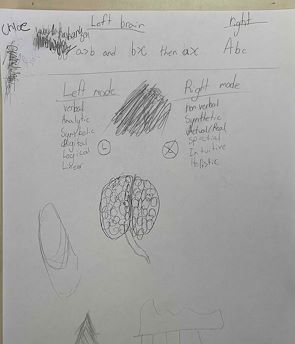 Chloe
Left brain
right
a>b and b>c then a>c
Abc
Left mode
Right mode
Verbal
Analytic
Symbolic
digital
Logical
Linear
L
non verbal
Synthetic
Actual/Real
Spatial
Intuitive
Holistic